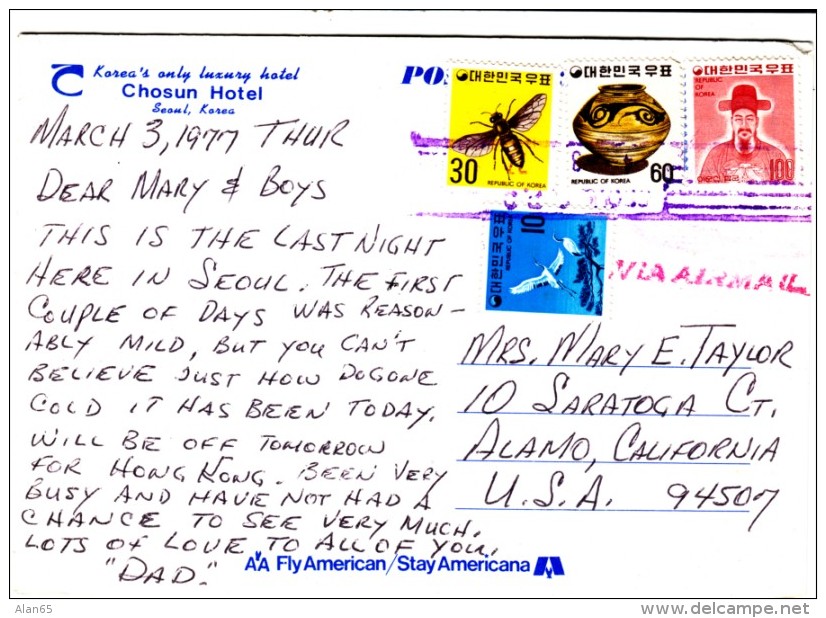 Korea's only luxury hotel
Chosun Hotel
Seoul, Korea
MARCH 3, 1977 THUR
DEAR MARY & BOYS
THIS IS THE LAST NIGHT
HERE IN SEOUL. THE FIRST
COUPLE OF DAYS WAS REASON-
ABLY MILD, BUT YOU CAN'T
BELIEVE JUST HOW DOGONE
COLD IT HAS BEEN TODAY.
WILL BE OFF TOMORROW
FOR HONG KONG. BEEN VERY
BUSY AND HAVE NOT HAD A
CHANCE TO SEE VERY MUCH.
LOTS OF LOVE TO ALL OF YOU,
"DAD."
대한민국우표
30
REPUBLIC OF KOREA
대한민국우표
REPUBLIC OF KOREA
60
대한민국우표
REPUBLIC OF KOREA
100
대한민국우표
REPUBLIC OF KOREA
10
VIA AIRMAIL
MRS. MARY E. TAYLOR
10 SARATOGA CT.
ALAMO, CALIFORNIA
U.S.A. 94507
AA Fly American/Stay Americana
Alan65
delcampe.net